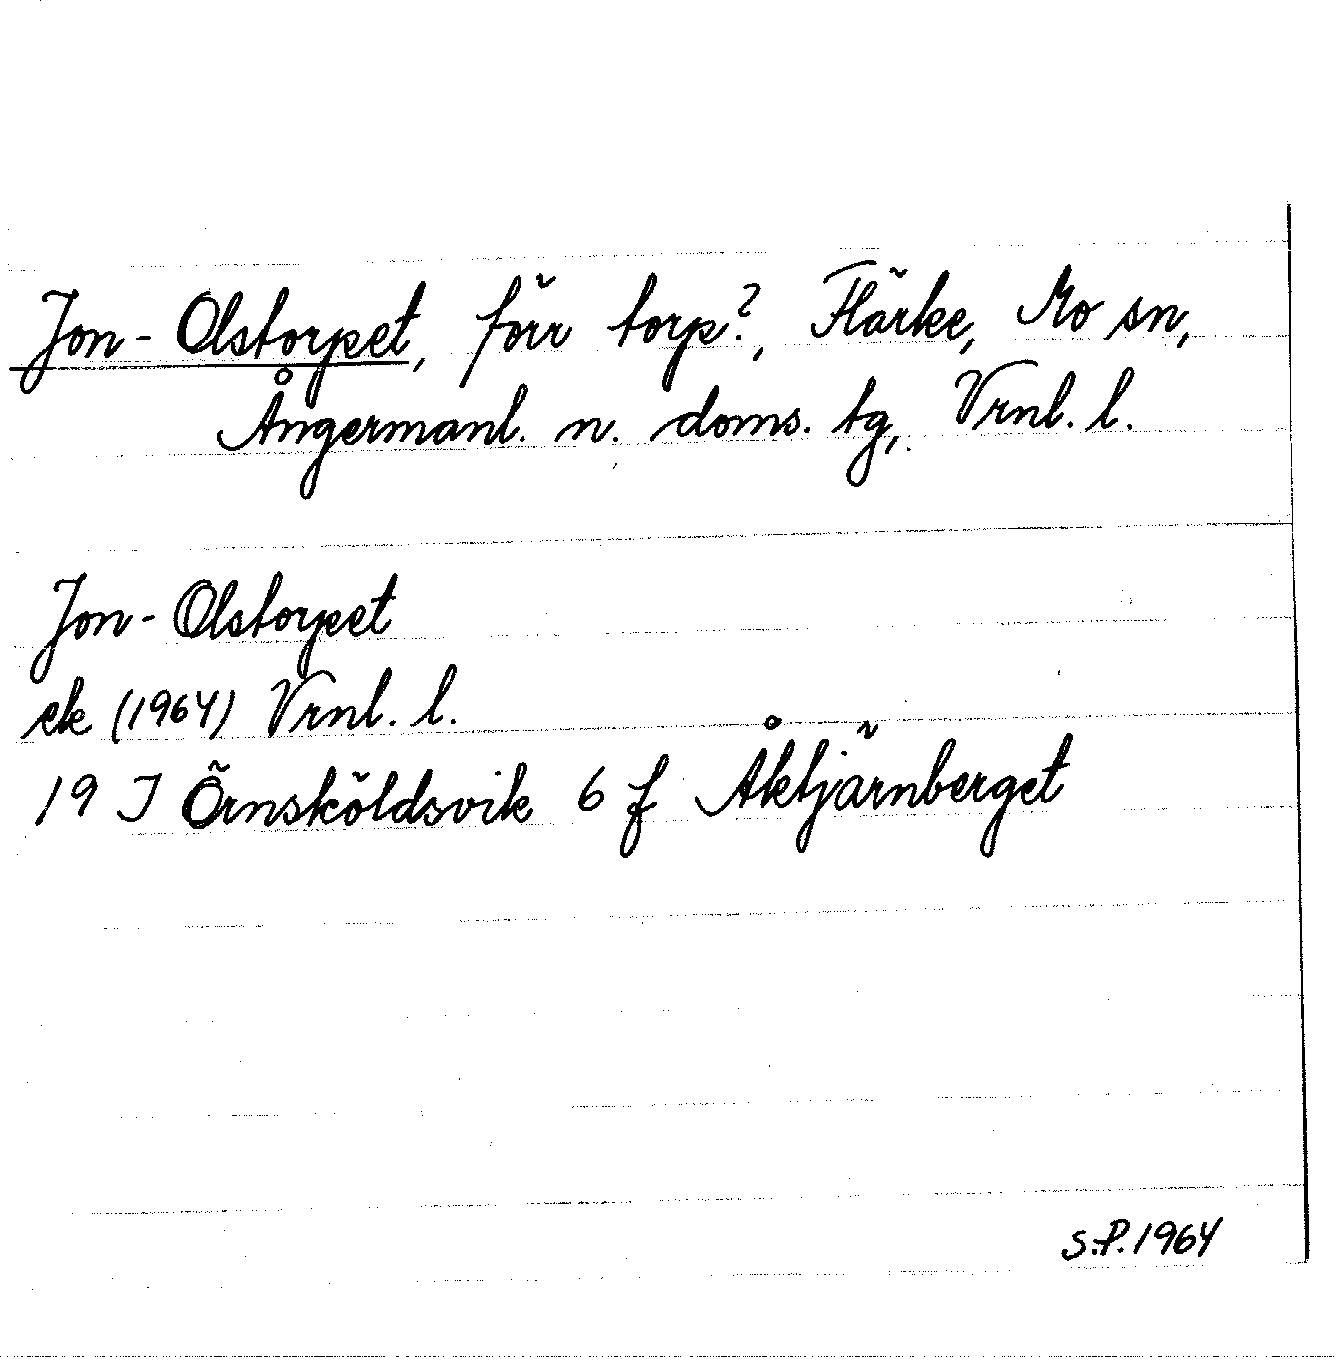 Jon-Olstorpet, förr torp?, Flärke, Mo sn,
Ångermanl. n. doms. tg, Vrnl. l.
Jon-Olstorpet
ek (1964) Vrnl. l.
19 J Örnsköldsvik 6 f Åktjärnberget
S.P. 1964